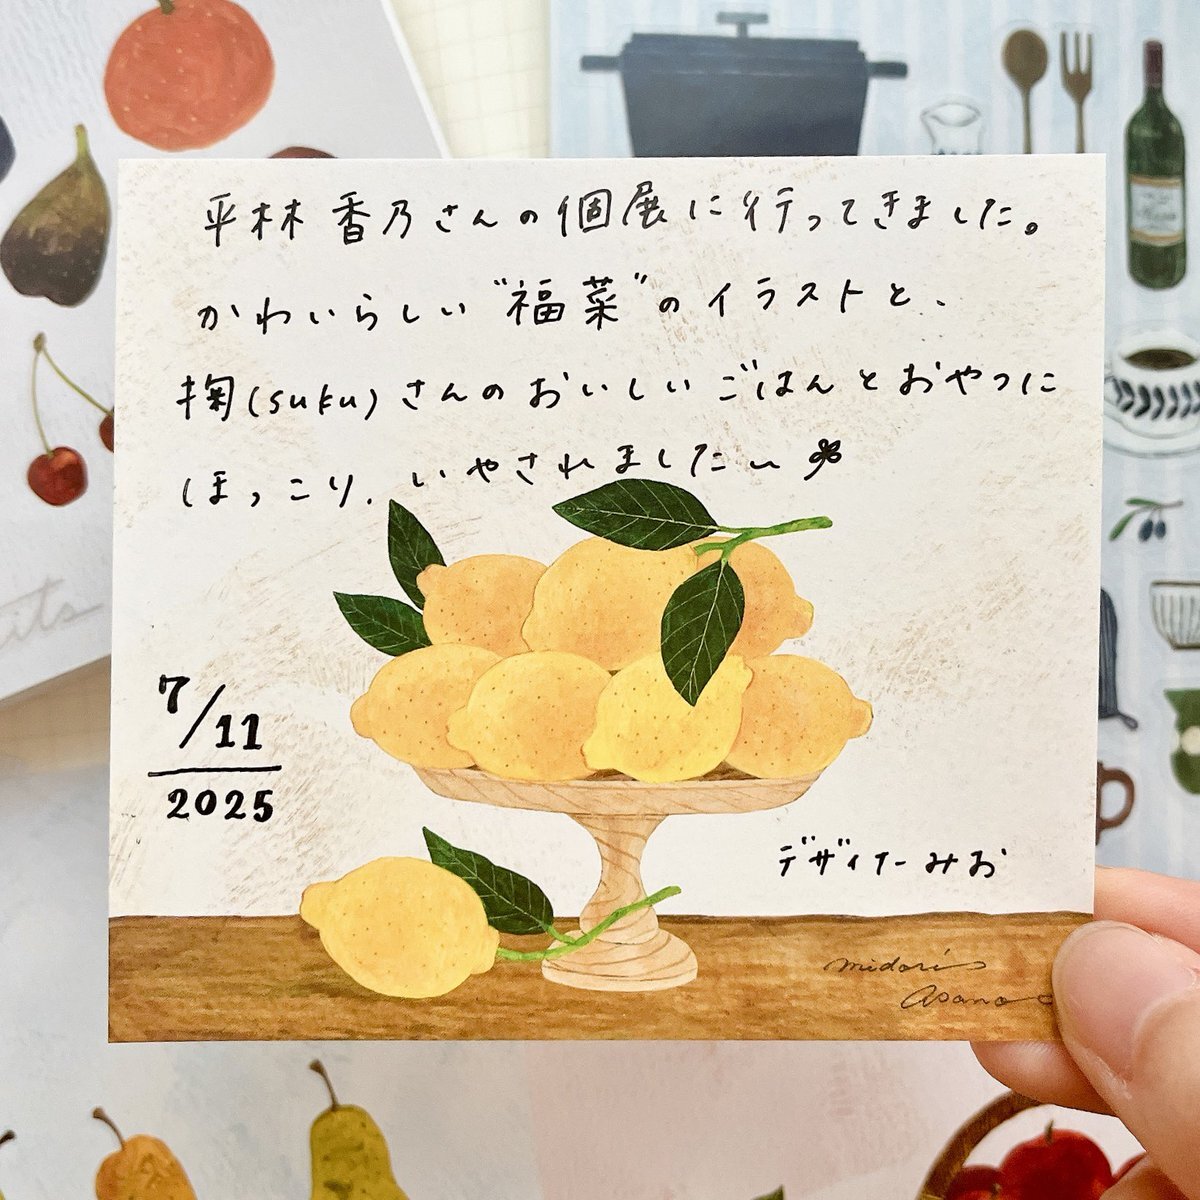 平林 香乃さんの個展に行ってきました。
かわいらしい"福菜"のイラストと、
掬(suku)さんのおいしいごはんとおやつに
ほっこり、いやされました〜
7/11
2025
デザイナーみお
midori
asano